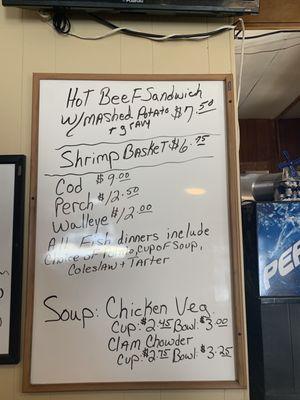 HOT BEEF Sandwich
W/MASHED POTATO $7.50
+ gravy
Shrimp BASKET $6.95
Cod $9.00
Perch $12.50
Walleye $12.00
All Fish dinners include
choice of Potato, cup of Soup,
Coleslaw + TArter
Soup: Chicken Veg
Cup: $2.45 Bowl: $3.00
Clam Chowder
Cup: $2.75 Bowl: $3.25
PEPS